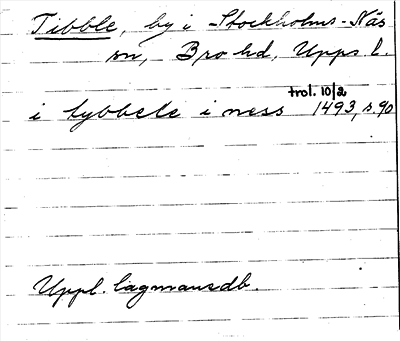 Tibble, by i Stockholms-Näs
sn, Bro hd, Upps l.
trol. 10/2
i tybbele i ness 1493, s. 90
Uppl. lagmansdb.